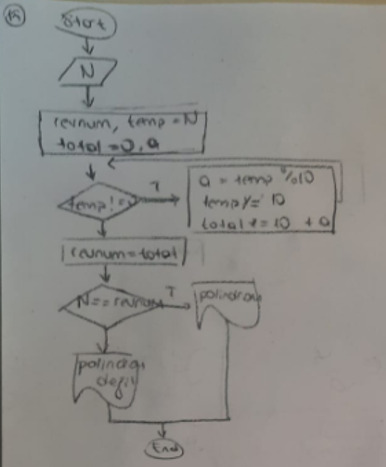 15
Start
N
revnum, temp = N
total = 0, a
temp != 0
T
a = temp % 10
temp /= 10
total *= 10 + a
revnum = total
N == revnum
T
polindrom
polindrom
degil
End